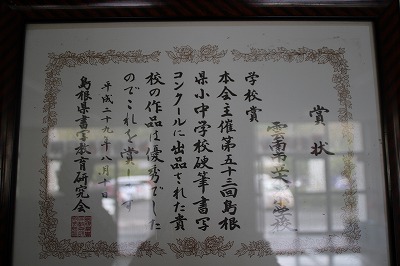 賞状
学校賞
本会主催第五十三回島根
県小中学校硬筆書写
コンクールに出品された貴
校の作品は優秀でした
のでこれを賞します
平成二十九年八月十日
島根県書写教育研究会